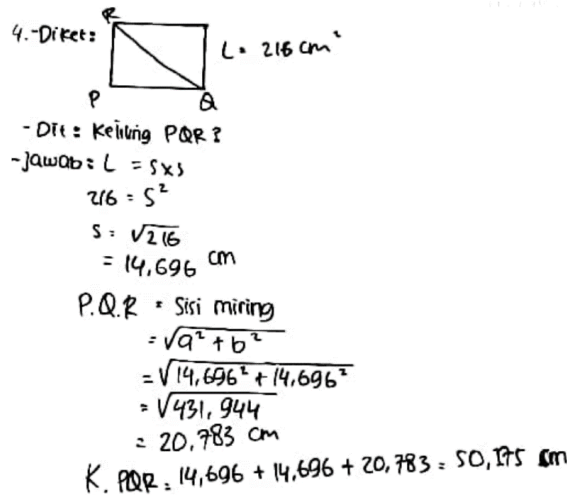 R
4. - Diket:
L = 216 cm²
P
Q
- Dit: Keliling PQR?
- Jawab: L = s x s
216 = S²
S = √216
= 14,696 cm
P.Q.R = Sisi miring
= √a² + b²
= √14,696² + 14,696²
= √431,944
= 20,783 cm
K. PQR = 14,696 + 14,696 + 20,783 = 50,175 cm